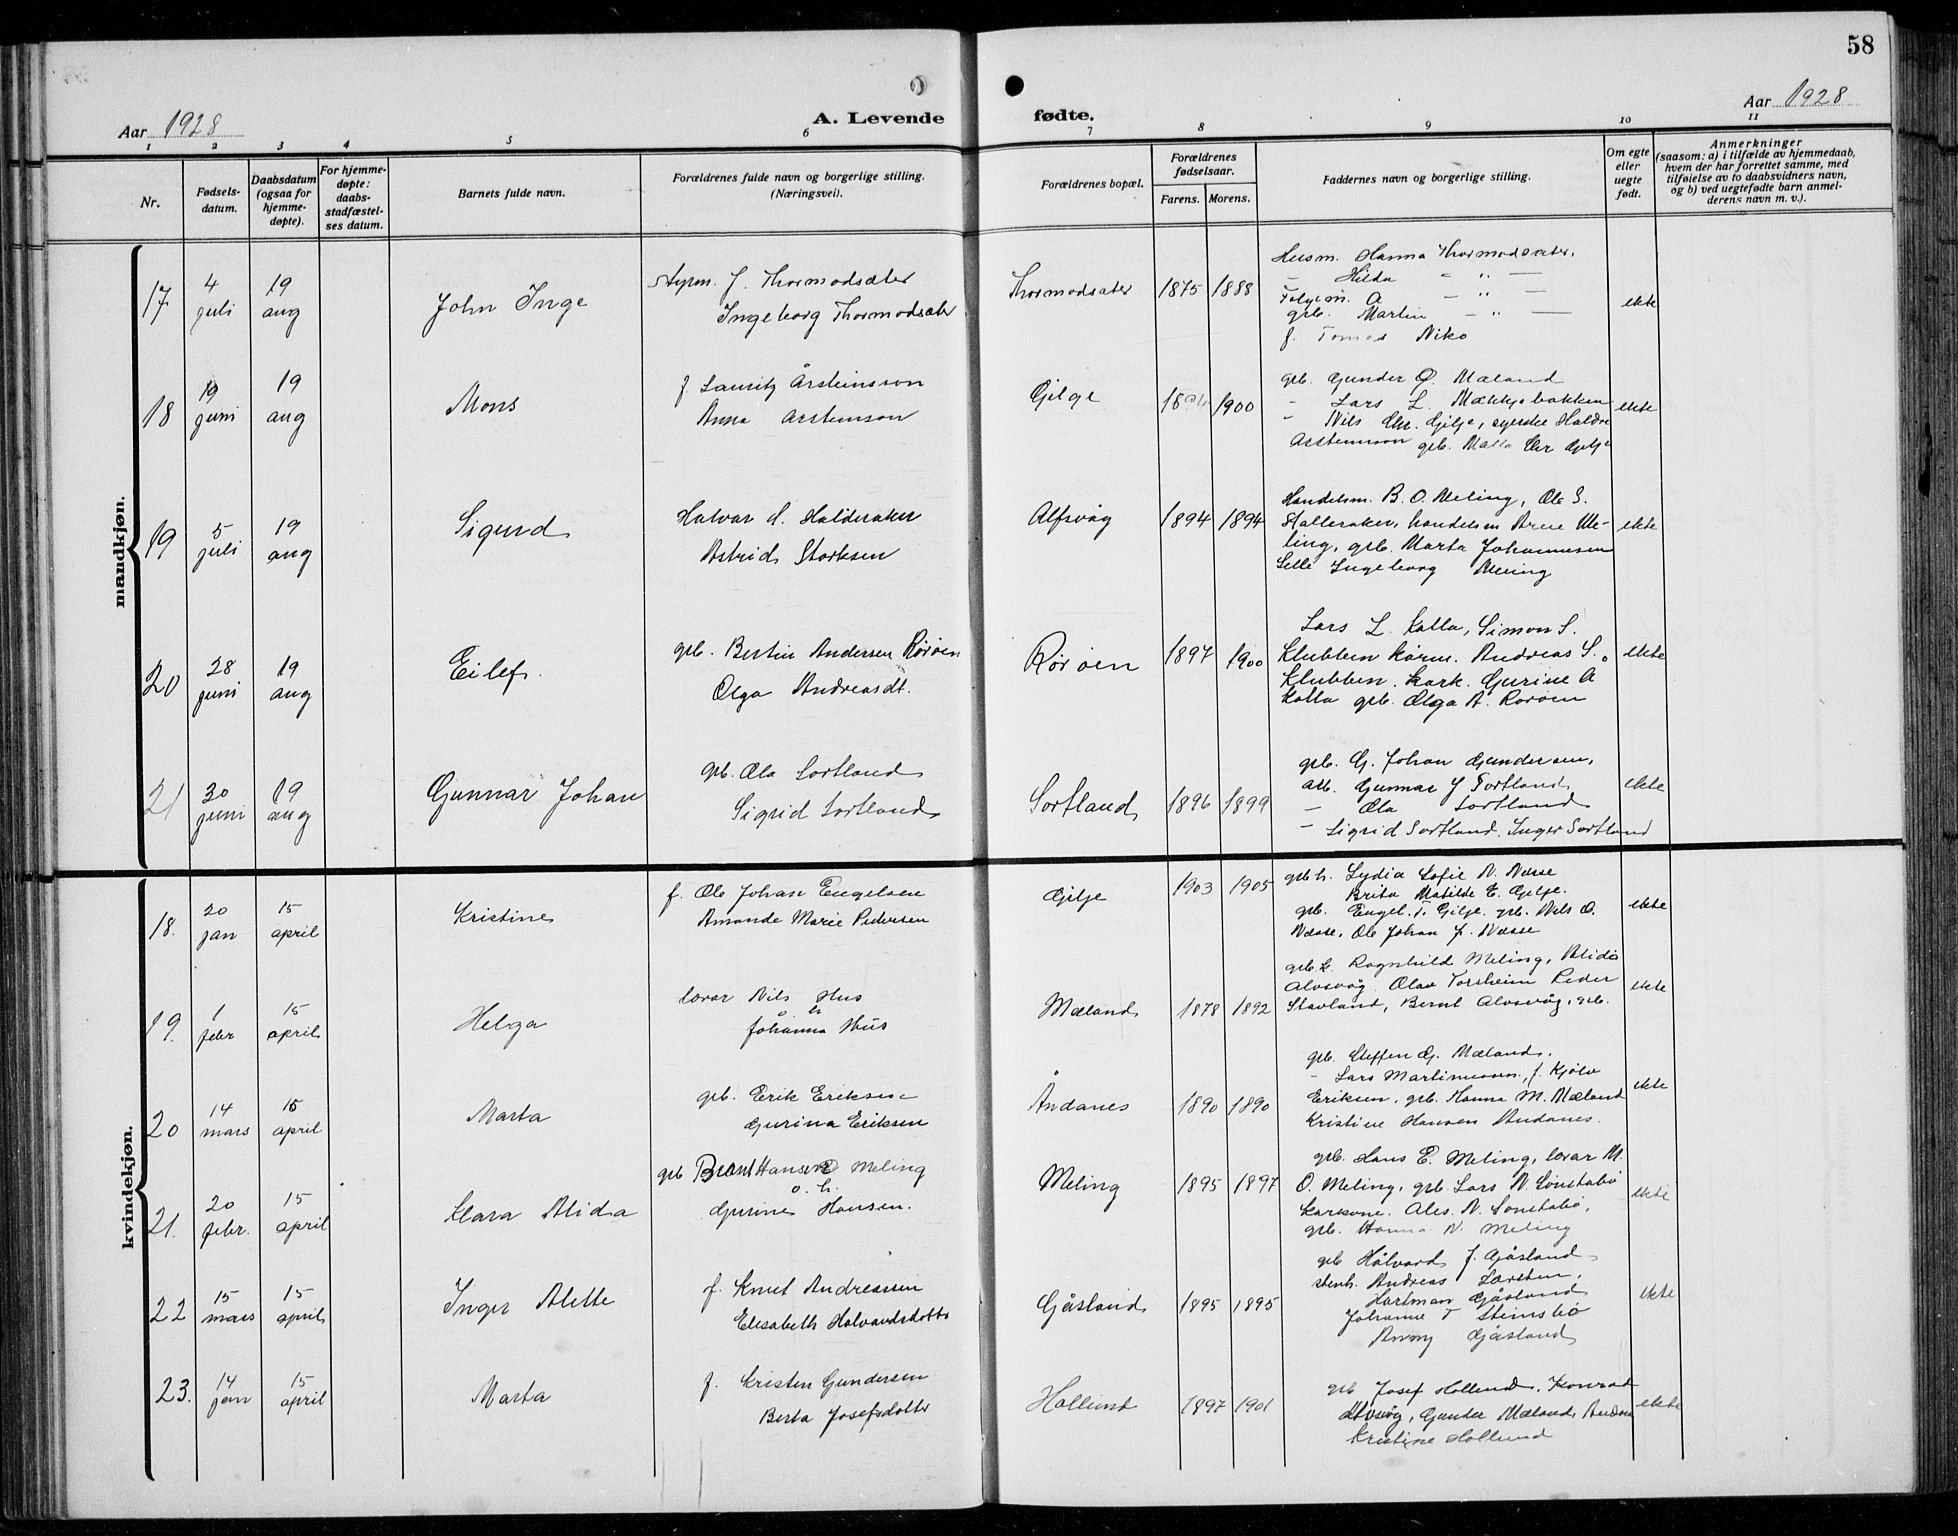 58
Aar 1928
A. Levende
fødte.
Aar 1928
1 2 3 4 5 6 7 8 9 10 11
Nr.
Fødsels-
datum.
Daabsdatum
(ogsaa for
hjemme-
døpte).
For hjemme-
døpte:
daabs-
stadfæstel-
ses datum.
Barnets fulde navn.
Forældrenes fulde navn og borgerlige stilling.
(Næringsvei).
Forældrenes bopæl.
Forældrenes
fødselsaar.
Farens. Morens.
Faddernes navn og borgerlige stilling.
Om egte
eller
uegte
født.
Anmerkninger
(saasom: a) i tilfælde av hjemmedaab,
hvem der har forrettet samme, med
tilføielse av to daabsvidners navn,
og b) ved uegtefødte barn anmel-
derens navn m. v.).
mandkjøn.
17 4 juli 19 aug John Inge
J. Thormodsæter
Ingeborg Thormodsæter
Thormodsæter 1875 1888
Husm. Hanna Thormodsæter,
— Hilda — " —
A — " —
grb. Martin — " —
f. Tomas Niko
ekte
18 19 juni 19 aug Mons
f. Lauritz Årsteinsson
Anna Arsteinson
Gjilge 1900
grb. Gunder Ø. Mæland
" Lars L. Mækkjebakken
" Nils Chr. Gilje, syerske Haldis
Arsteinson grb. Malla Chr Gilje
ekte
19 5 juli 19 aug Sigurd
Halvar H. Halderaker
Astrid Storksen
Alfsvåg 1894 1894
Handelsm. B. O. Meling, Ole S.
Halleraker, handelsm Arne Me-
ling, grb. Marta Johannesen
Selle Ingeborg Meling
ekte
20 28 juni 19 aug Eilef.
grb. Bertin Andersen Rørøen
Olga Andreasdt.
Rørøen 1897 1900
Lars L. Kalla, Simon S.
Klubben Kørm. Andreas S.
Klubben. Gurine A
Kalla grb. Olga A. Rørøen
ekte
21 30 juni 19 aug Gunnar Johan
grb. Ola Sortland
Sigrid Sortland
Sortland 1896 1899
grb. G. Johan Gundersen,
arb. Gunnar J Sortland,
— Ola Sortland
— Sigrid Sortland. Inger Sortland
ekte
kvindekjøn.
18. 20 jan 15 april Kristine
f. Ole Johan Engelsen
Amanda Marie Pedersen
Gilje 1903 1905
grb.h. Lydia Sofie N. Næsse
Brita Matilde E. Gilje.
grb. Engel. T. Gilje. grb. Nils O.
Næsse, Ole Johan J. Næsse
ekte
19. 1 febr 15 april Helga
lærar Nils Hus
o. h
Johanna Hus
Mæland 1878 1892
grb. k. Ragnhild Meling, Alida
Alvsvåg. Olav Torsheim Peder
Stavland, Bernt Alvsvåg, grb.
ekte
20 14 mars 15 april Marta
grb. Erik Eriksen
Gurina Eriksen
Åndanes 1890 1890
grb. Steffen G. Mæland,
— Lars Martinussen, f. Kjölv
Eriksen, grb. Hanna M. Mæland
Kristine Hansen Andanes.
ekte
21. 20 febr. 15 april Klara Alida
grb Brant Hansen Meling
o. h.
Gurine Hansen.
Meling 1895 1897
grb. Hans E. Meling, lærar M.
O. Meling, grb Lars N. Sønstabø
Karkone. Ales. N. Sønstabø,
grb. Hanna N. Meling
ekte
22 15 mars 15 april Inger Alette
f. Knut Andreassen
Elisabeth Halvardsdotter
Gåsland 1895 1895
grb Halvard J. Gåsland
stenh. Andreas Larsten,
Hartman Gåsland
Johanne T Steinsbø
Anny Gåsland
ekte
23. 14 jan 15 april Marta
f. Kristen Gundersen
Berta Josefsdotter
Hollund 1897 1901
grb Josef Hollund, Konrad
Alvsvåg, Gunder Mæland, Andrea
Kristine Hollund
ekte